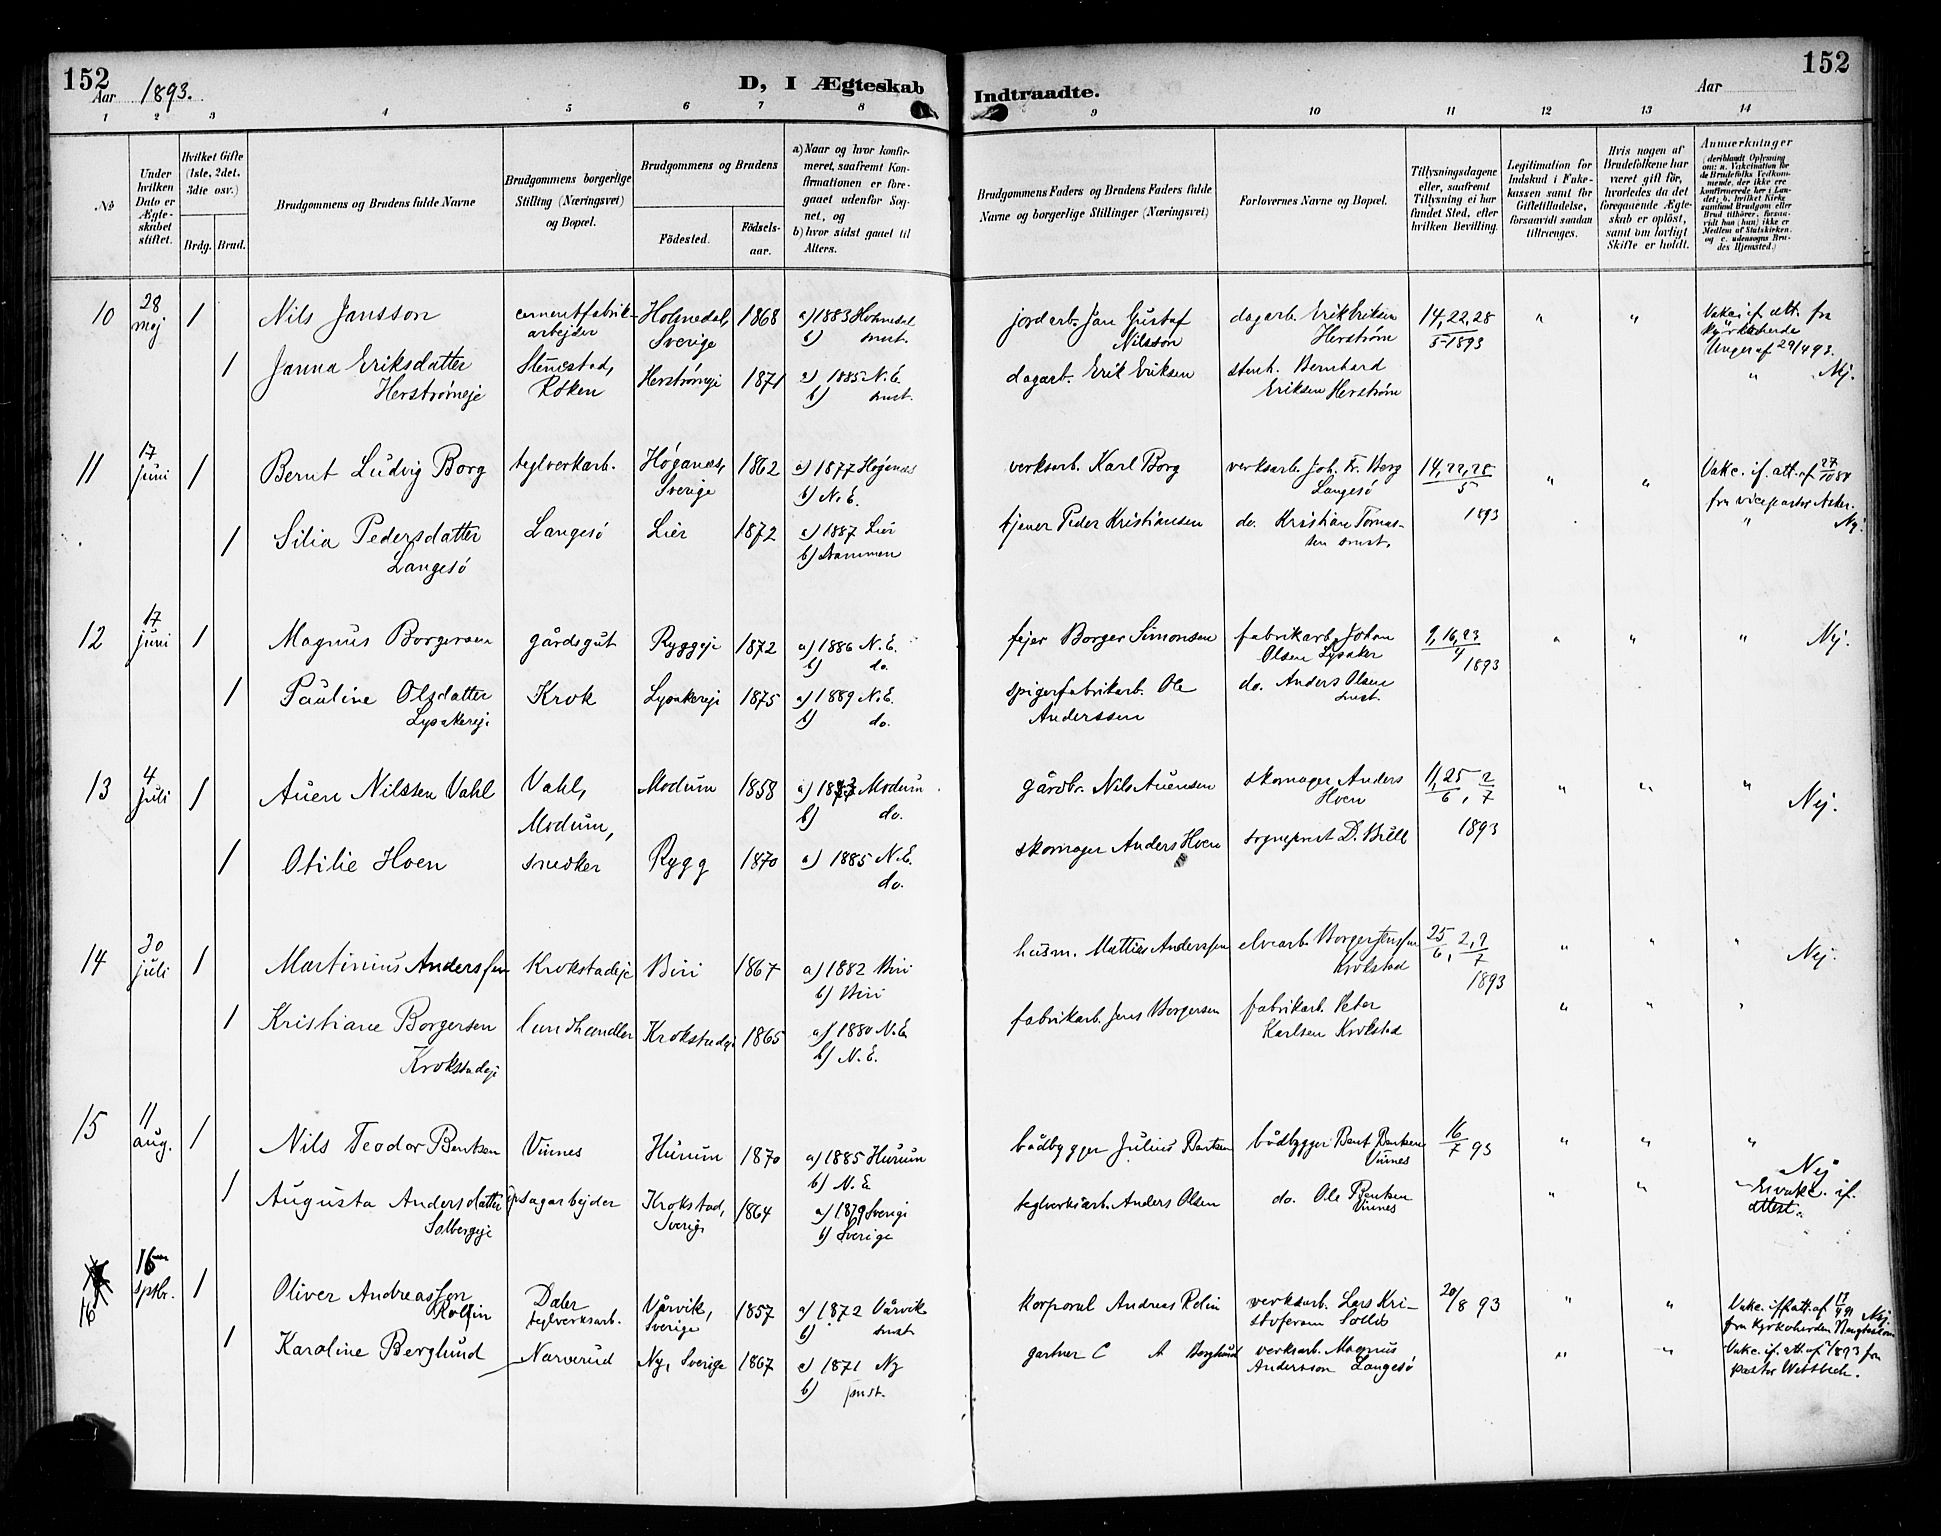 152
Aar 1893.
D, I Ægteskab Indtraadte.
Aar
152
1 2 3 4 5 6 7 8 9 10 11 12 13 14
No
Under hvilken Dato er Ægteskabet stiftet.
Hvilket Gifte (1ste, 2det, 3die osv.)
Brdg. Brud.
Brudgommens og Brudens fulde Navne
Brudgommens borgerlige Stilling (Næringsvei) og Bopæl.
Brudgommens og Brudens
Fødested.
Fødselsaar.
a) Naar og hvor konfirmeret, saafremt Konfirmationen er foregaaet udenfor Sognet, og
b) hvor sidst gaaet til Alters.
Brudgommens Faders og Brudens Faders fulde Navne og borgerlige Stillinger (Næringsvei)
Forlovernes Navne og Bopæl.
Tillysningsdagene eller, saafremt Tillysning ei har fundet Sted, efter hvilken Bevilling.
Legitimation for Indskud i Enkekassen samt for Giftetilladelse, forsaavidt saadan tiltrænges.
Hvis nogen af Brudefolkene har været gift før, hvorledes da det foregaaende Ægteskab er opløst, samt om lovligt Skifte er holdt.
Anmærkninger (deriblandt Oplysning om: a. Vakcination for de Brudefolks Vedkommende, der ikke ere konfirmerede her i Landet; b. hvilket Kirkesamfund Brudgom eller Brud tilhører, forsaavidt han (hun) ikke er Medlem af Statskirken, og c. udensogns Brudes Hjemsted.)
10 28 maj 1 Nils Jansson cementfabrikarbejder Holmedal, Sverige 1868 a) 1883 Holmedal b) smst. jordarb. Jan Gustaf Nilsson dagarb. Erik Eriksen Herstrøm 14, 22, 28/5 1893 " " Vakc. if. att. fra kyrkoherde Unger af 29/4 93.
1 Janna Eriksdatter Herstrømeje Stenestad, Røken Herstrømeje 1871 a) 1885 N. E. b) smst. dagarb. Erik Eriksen stenh. Bernhard Eriksen Herstrøm " Nej.
11 17 juni 1 Bernt Ludvig Borg teglverkarb. Höganäs, Sverige 1862 a) 1877 Höganäs b) N. E. verksarb. Karl Borg verksarb. Joh. Fr. Berg Langesö 14, 22, 28/5 1893 " " Vakc. if. att. af 27/10 84 fra vicepastor Asker.
1 Silia Pedersdatter Langesö Langesö Lier 1872 a) 1887 Lier b) Drammen tjener Peder Kristiansen do. Kristian Tomassen smst. " Nej.
12 17 juni 1 Magnus Borgersen gårdsgut Ryggeje 1872 a) 1886 N. E. b) do. fejer Borger Simonsen fabrikarb. Johan Olsen Lysaker 9, 16, 23/4 1893 " " " Nej.
1 Pauline Olsdatter Lysakereje Krok Lysakereje 1875 a) 1889 N. E. b) do. spigerfabrikarb. Ole Anderssen do. Anders Olsen smst.
13 4 juli 1 Auen Nilssen Vahl Vahl, Modum, Modum 1858 a) 1873 Modum b) do. gårdbr. Nils Auensen skomager Anders Hoen 11, 25/6, 2/7 1893 " " " Nej.
1 Otilie Hoen snedker Rygg 1870 a) 1885 N. E. do. skomager Anders Hoen sogneprest D. Bull
14 30 juli 1 Martinius Anderssen Krokstadeje Biri 1867 a) 1882 Biri b) Biri husm. Mattias Anderssen elvearb. Borger Jenssen Krokstad 25/6, 2, 9/7 1893 " " " Nej.
1 Kristiane Borgersen Krokstadeje landhandler Krokstadeje 1865 a) 1880 N. E. b) N. E. fabrikarb. Jens Borgersen fabrikarb. Peter Karlsen Krokstad " " "
15 11 aug. 1 Nils Teodor Bentsen Vinnes Hurum 1870 a) 1885 Hurum b) N. E. bådbygger Julius Bentsen bådbygger Bent Bentsen Vinnes 16/7 93 " " " Nej
1 Augusta Andersdatter Solbergeje sagarbejder Krokstad, Sverige 1864 a) 1879 Sverige b) Sverige teglverksarb. Anders Olsen do. Ole Bentsen Vinnes " " Er vakc. if. attest.
16 16 sptbr. 1 Oliver Andreasson Rolin Daler teglverksarb. Vårvik, Sverige 1857 a) 1872 Vårvik b) smst korporal Andreas Rolin verksarb. Lars Kristofersen Sollid 20/8 93 " " Vakc. if. att. af 13/4 91 Nej. fra kyrkoherden
1 Karoline Berglund Narverud Ny, Sverige 1867 a) 1871 Ny b) smst. gartner C A Berglund verksarb. Magnus Andersson Langesö " " Vakc. if. att. af 1893 fra pastor